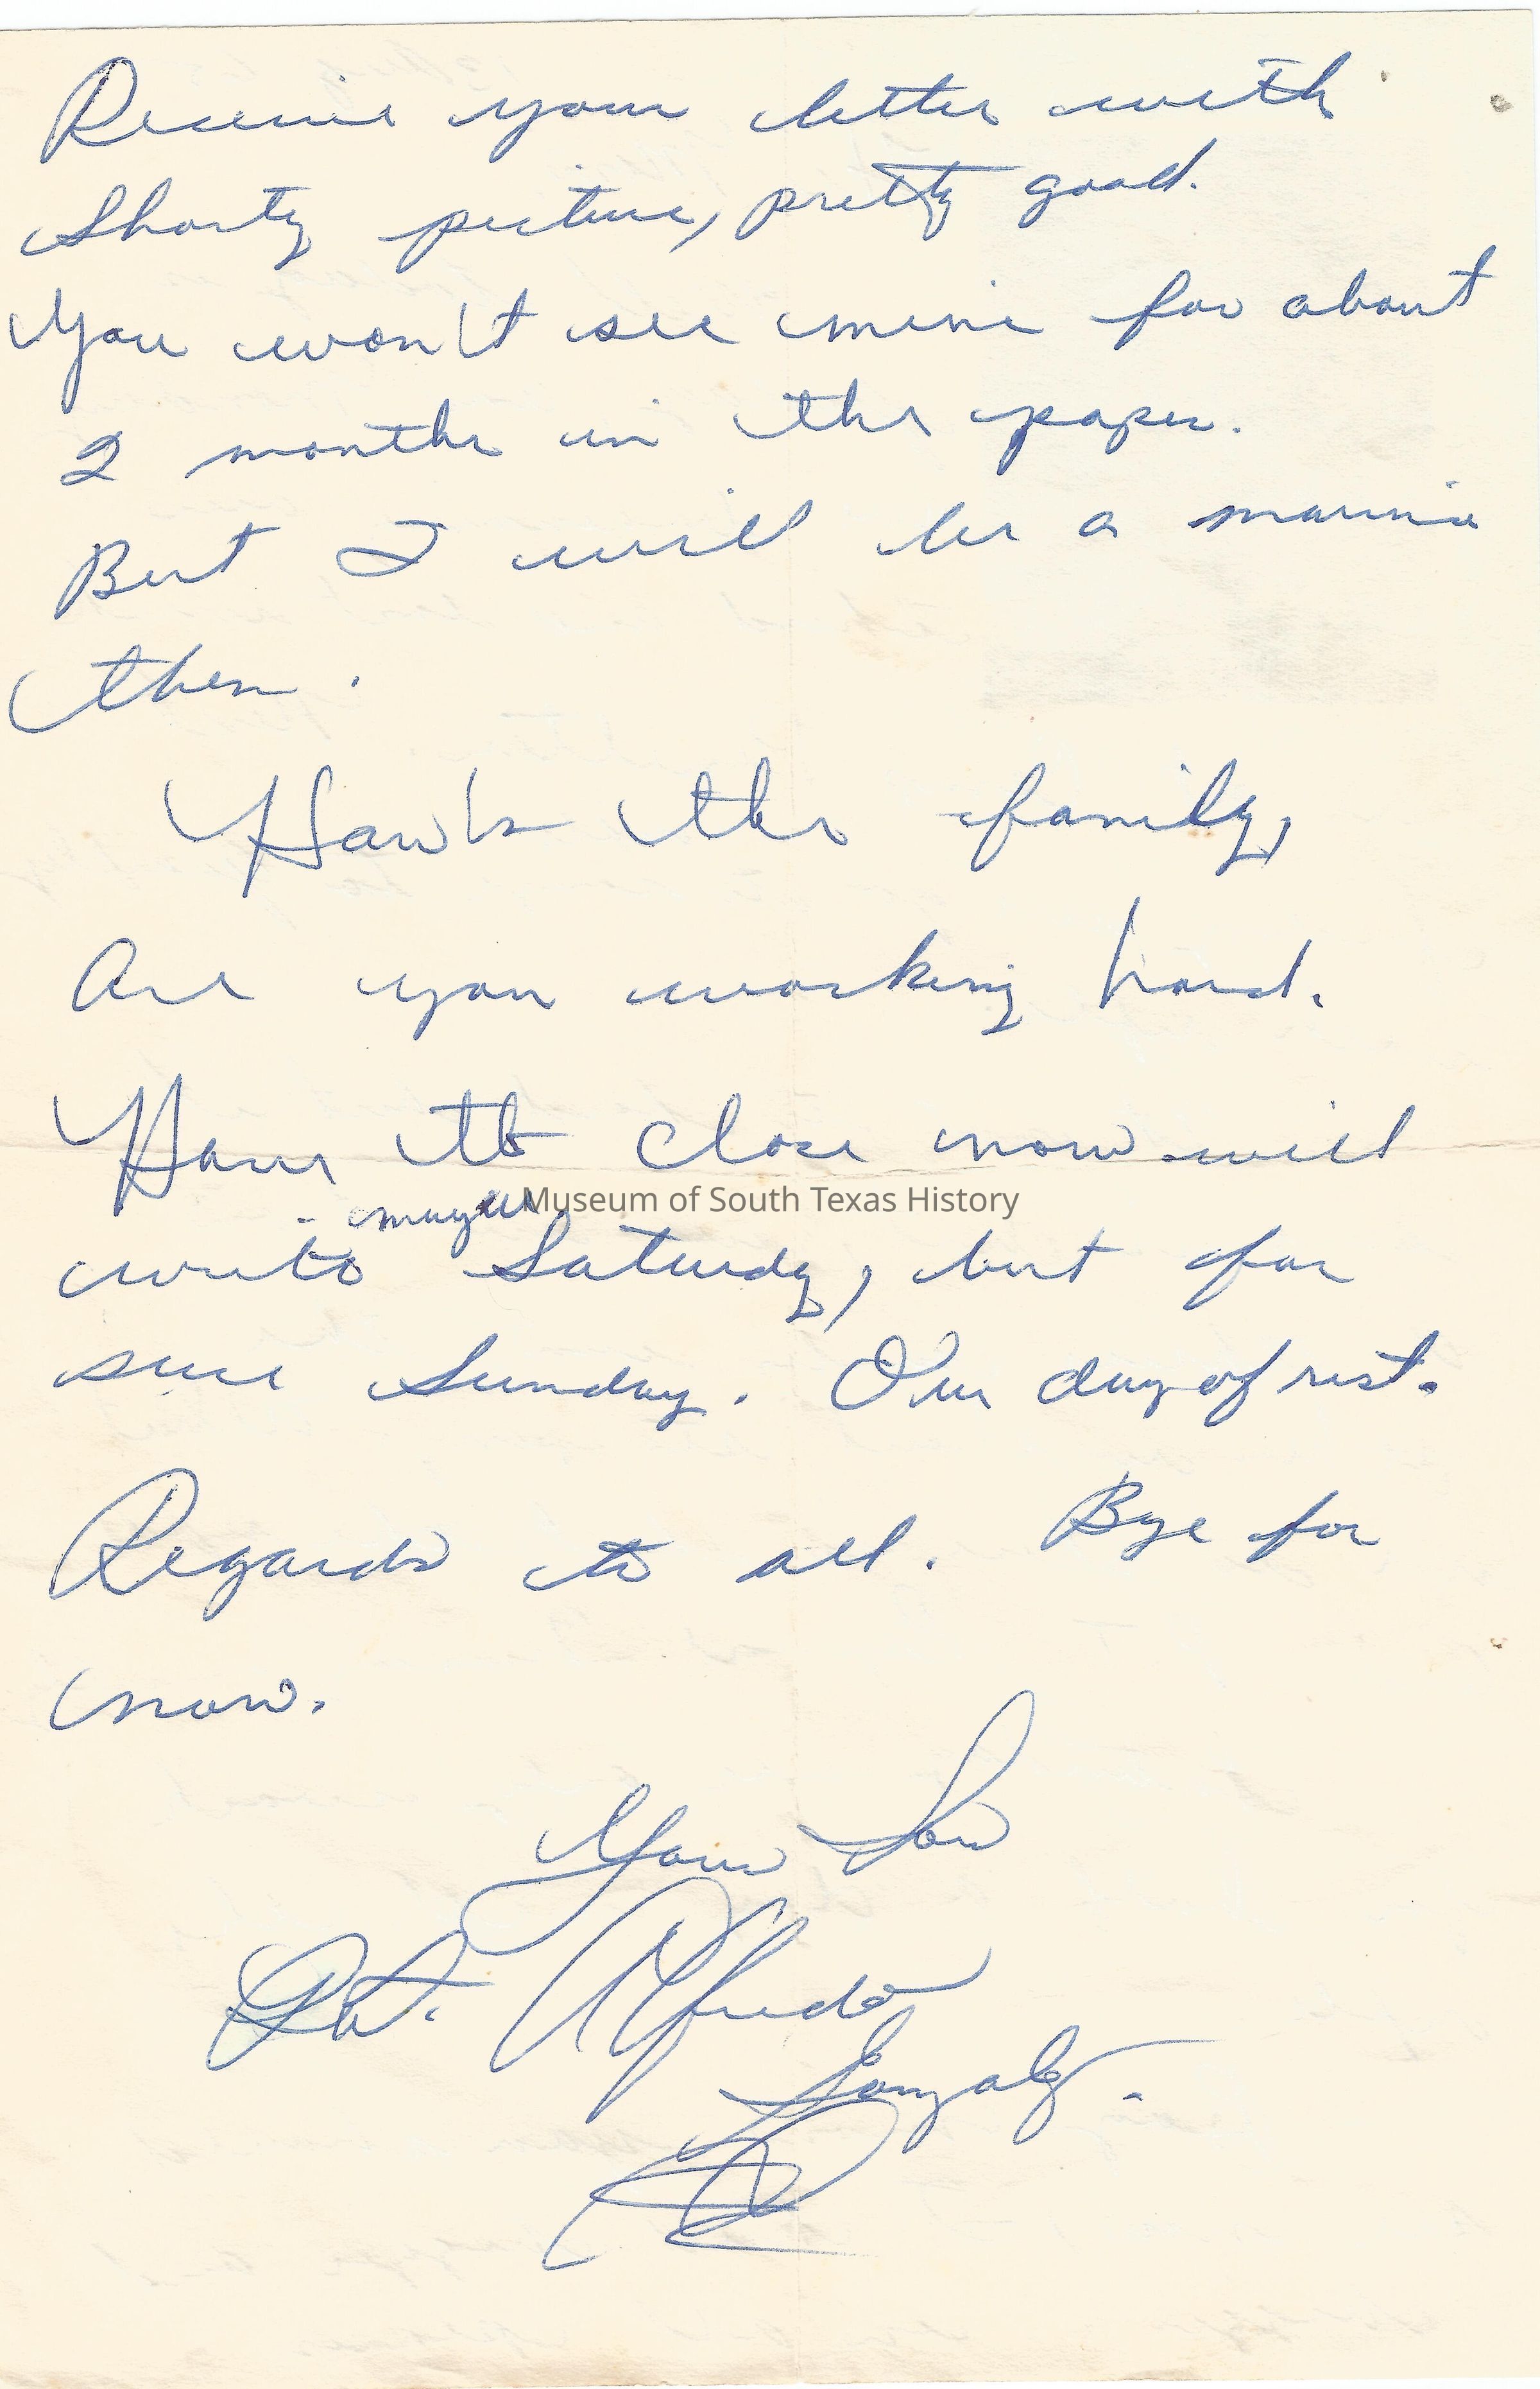 Receive your letter with
Shorty picture, pretty good.
You won't see mine for about
2 months in the paper.
But I will be a marine
then.
How's the family,
Are you working hard.
Have to close now will
Museum of South Texas History
write Saturdy, but for
sure Sunday. Our day of rest.
Regards to all. Bye for
now.
Your Son
Pvt. Alfredo
Gonzalez.